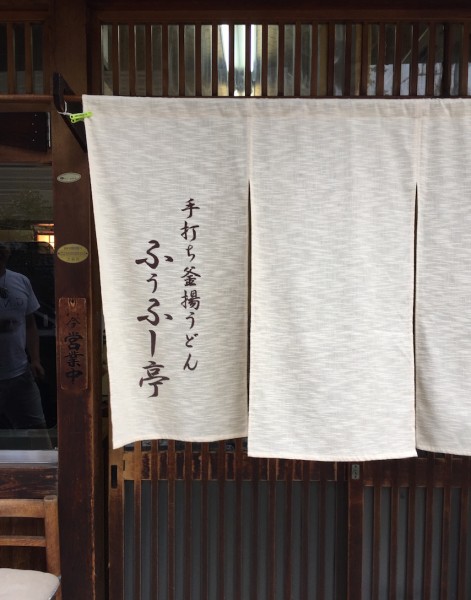 手打ち釜揚うどん
ふぅふー亭
営業中